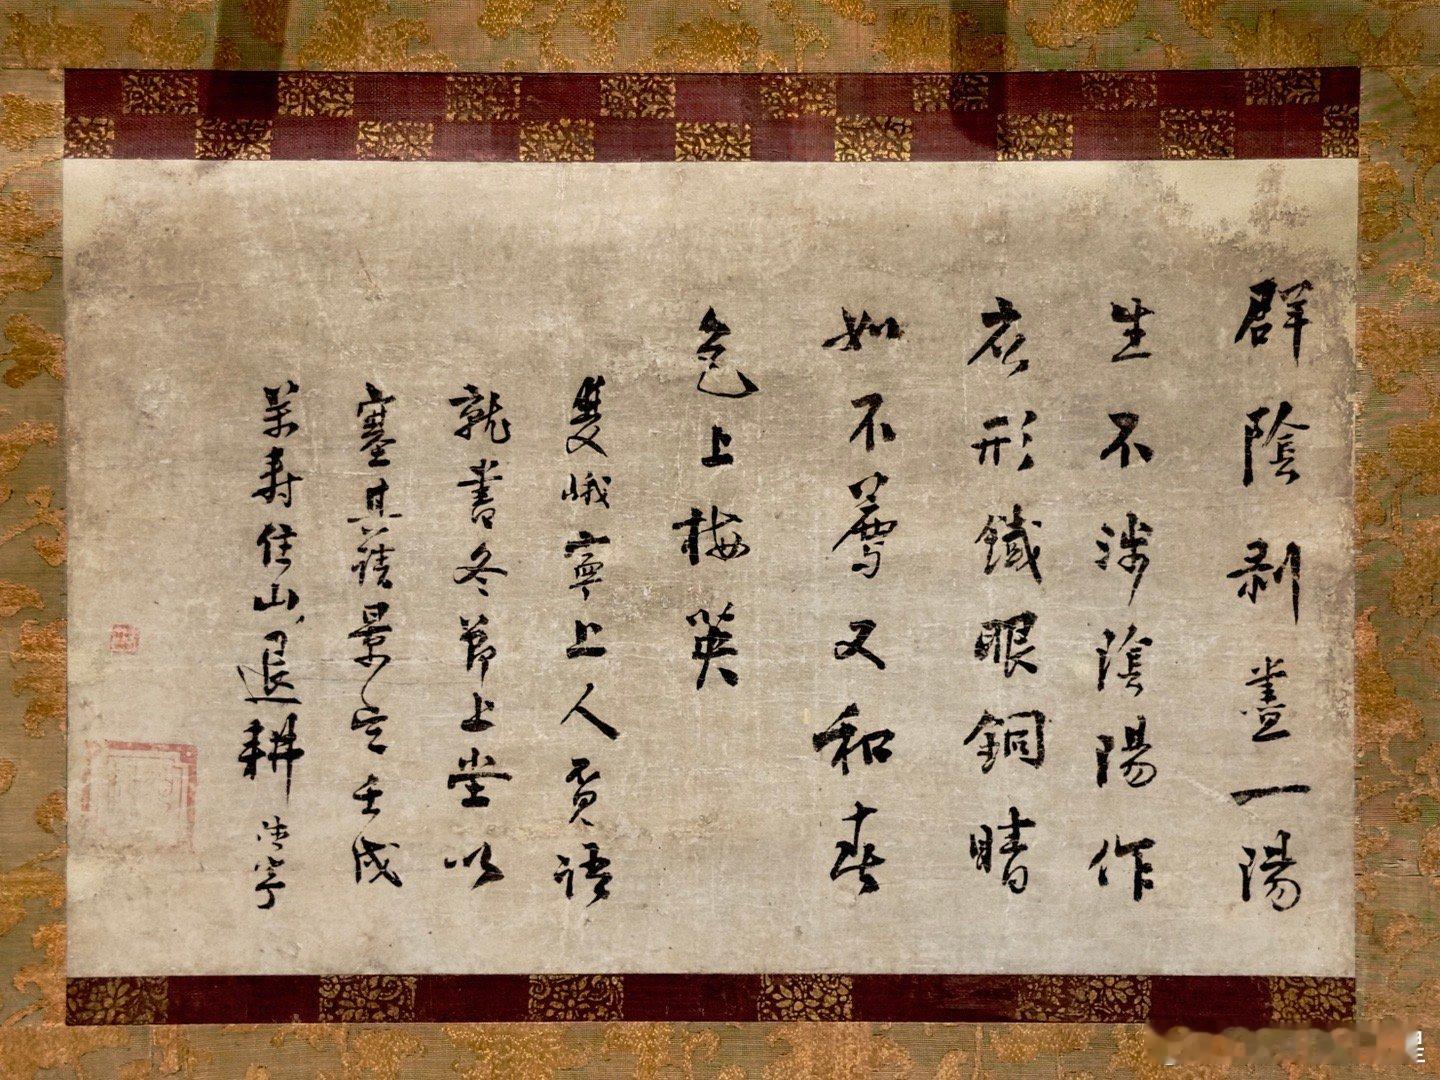 群陰剥盡一陽
生不涉陰陽作
者形鐵眼銅睛
如不薦又和春
色上梅英
雙峨寧上人覓語
就書冬節上堂以
塞其請景定壬戌
萬壽住山退耕德寧